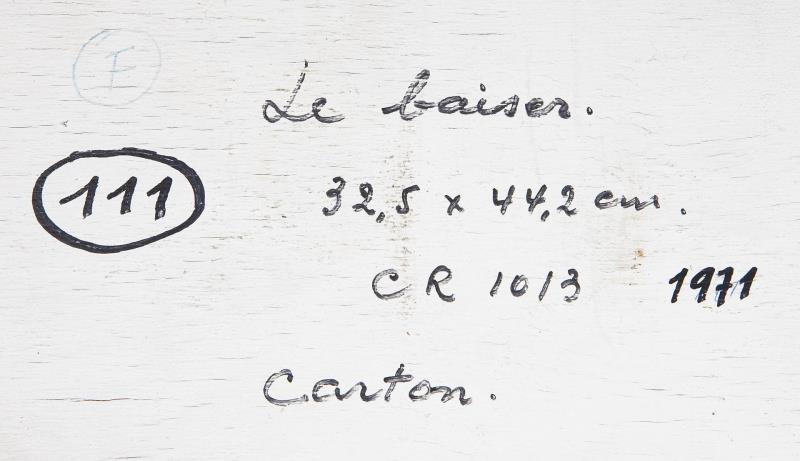 F
Le baiser.
111
32,5 x 44,2 cm.
CR 1013 1971
Carton.